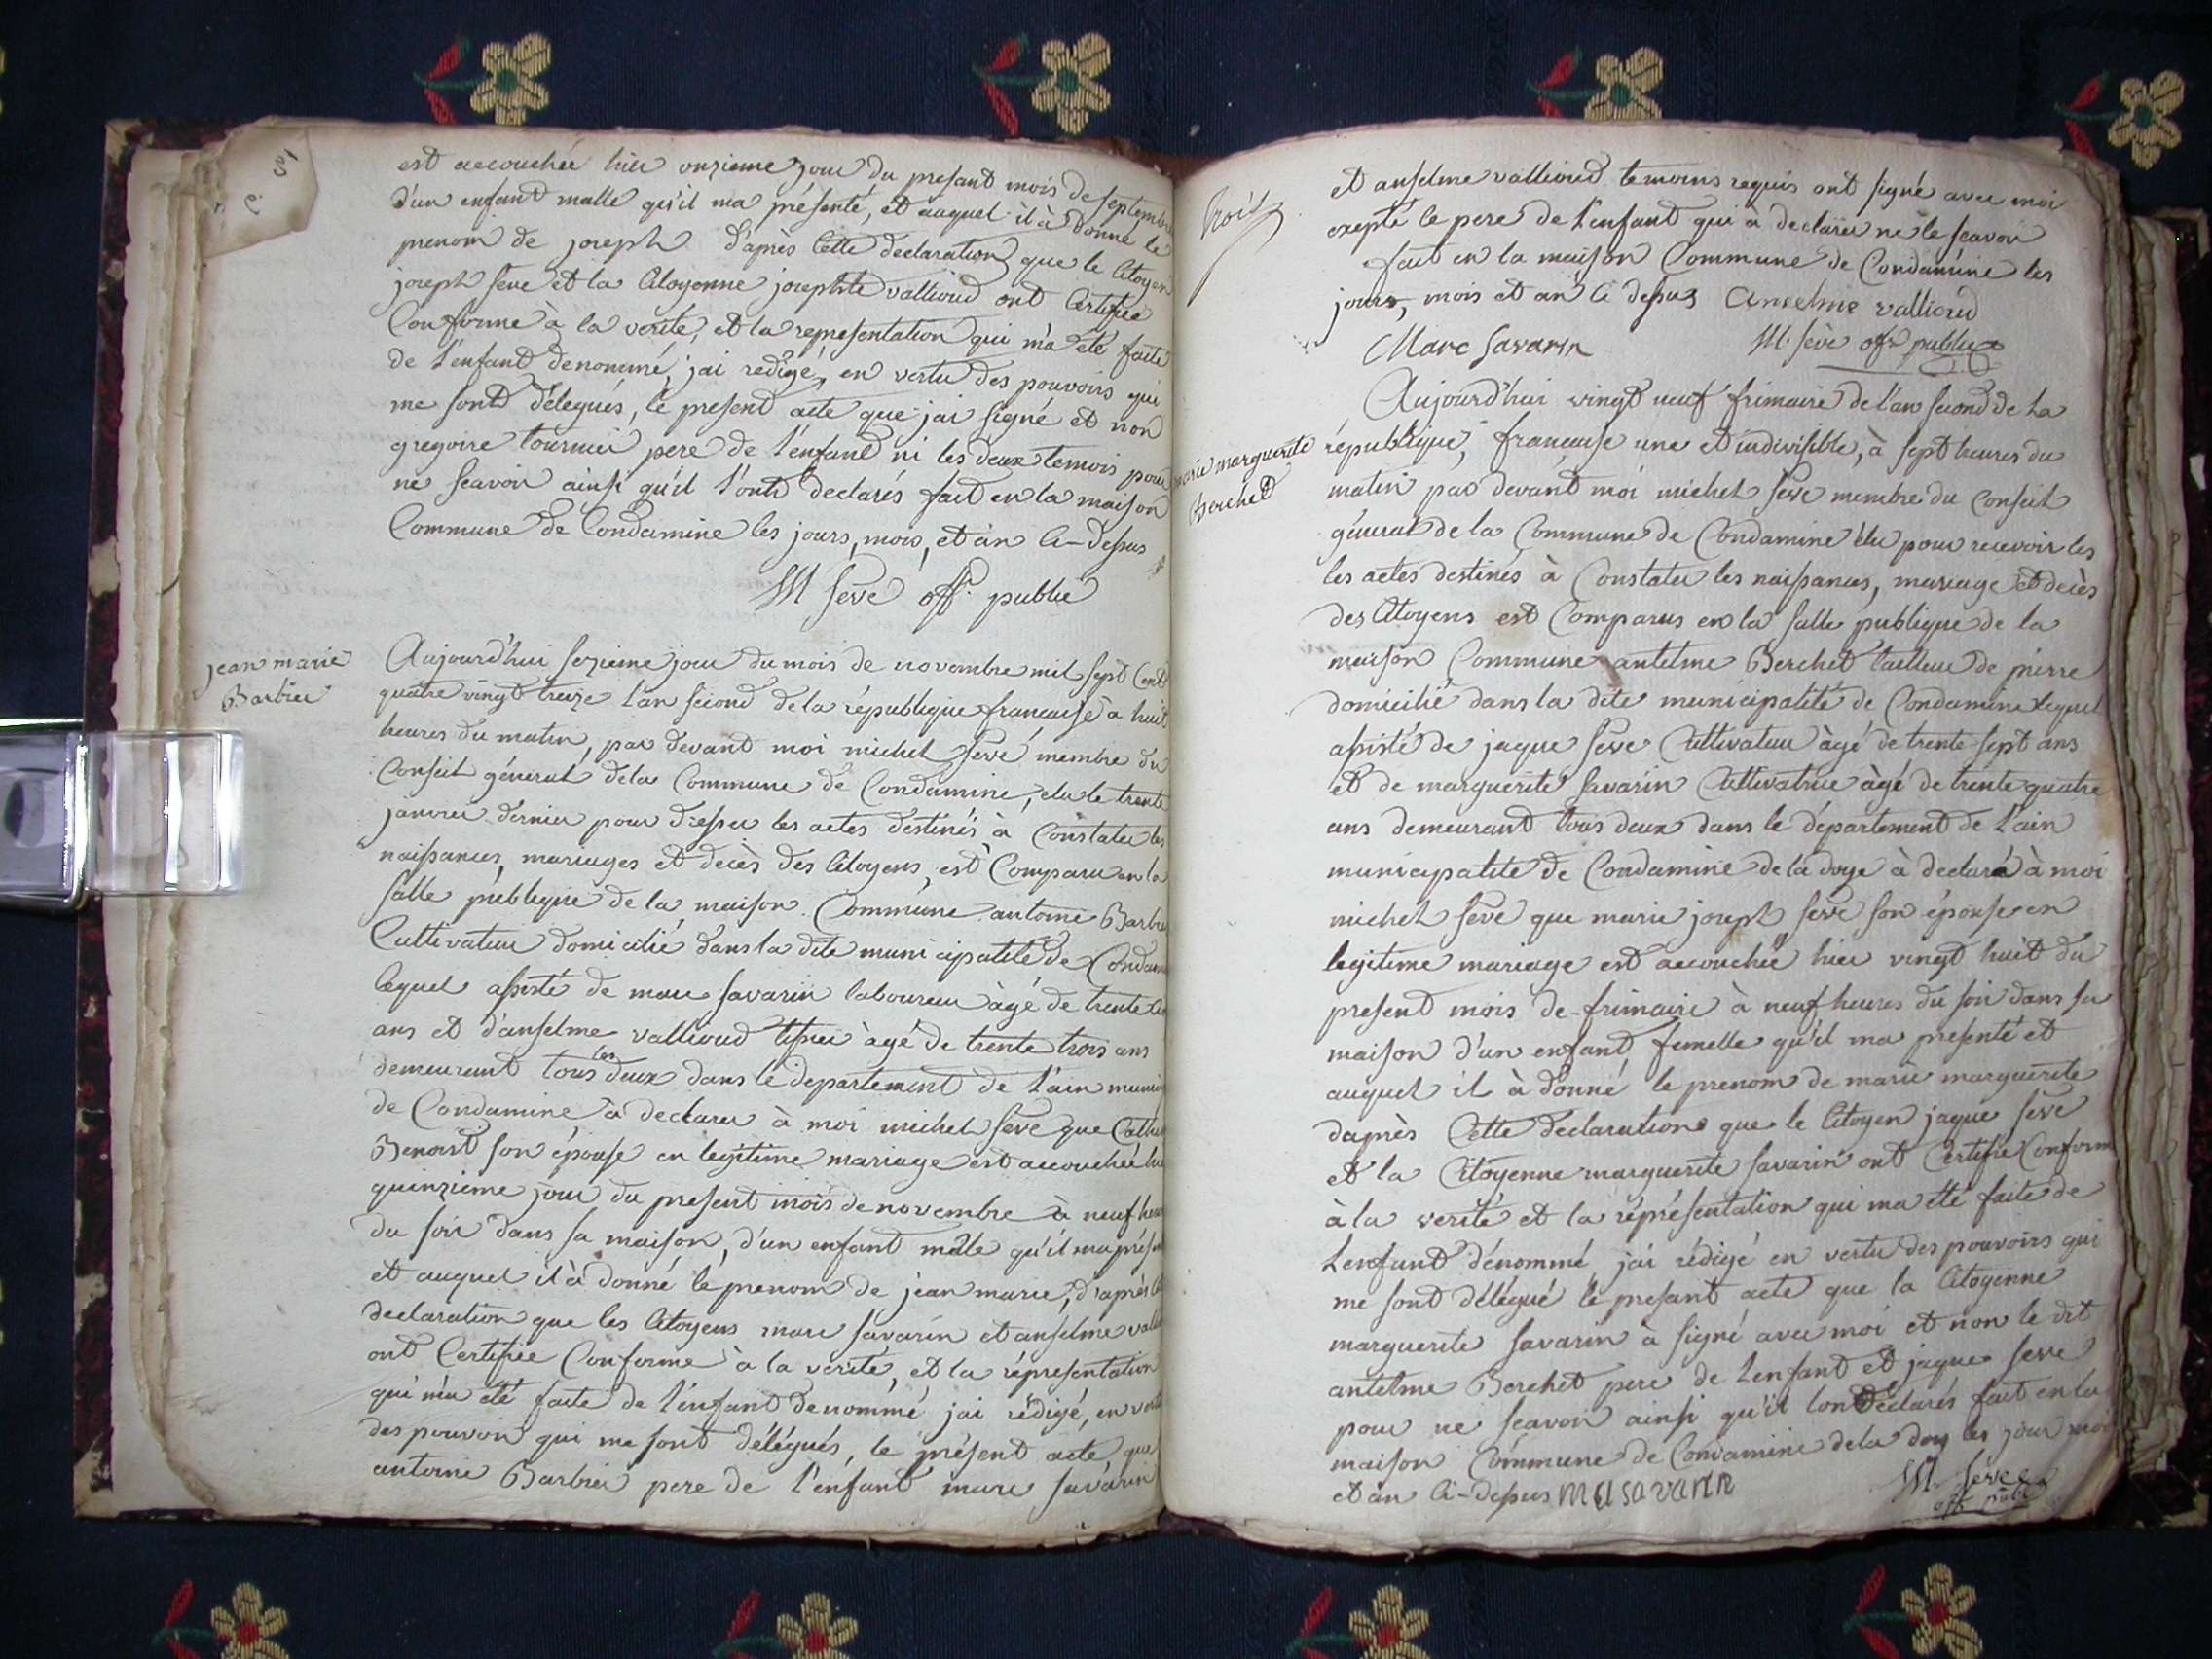 est accouchée hier onzieme jour du presant mois de septembre
d'un enfant malle qu'il ma présenté, et auquel il à donné le
prenom de joseph d'après cette declaration que le Citoyen
joseph seve et la Citoyenne josephte vallioud ont Certifiée
Conforme à la verité, et la representation qui m'a été faite
de l'enfant denommé, jai redigé, en vertu des pouvoirs qui
me sont délégués, le present acte que jai signé et non
gregoire tournier pere de l'enfant ni les deux temois pour
ne scavoir ainsi qu'il l'ont declarés fait en la maison
Commune de Condamine les jours, mois, et àn ci-dessus
M seve off. public
jean marie
Barbier
Aujourd'hui sezieme jour du mois de novembre mil sept Cent
quatre vingt treize l'an second de la république francaise à huit
heures du matin, par devant moi michel seve membre du
Conseil général de la Commune de Condamine, elu le trente
janvier dernier pour dresser les actes destinés à Constater les
naissances, mariages et decès des Citoyens, est Comparu en la
salle publique de la maison Commune antoine Barbier
Cultivateur domicilié dans la dite municipalité de Condam
lequel assisté de marc savarin laboureur àgé de trente
ans et d'anselme vallioud tissier àgé de trente trois ans
demeurant tous les deux dans le departement de l'ain munici
de Condamine à declarer à moi michel seve que Cath
Benoist son épouse en legitime mariage est accouchée hier
quinzieme jour du present mois de novembre à neuf heur
du soir dans sa maison, d'un enfant mâle qu'il ma prés
et auquel il à donné le prenom de jean marie, d'après
declaration que les Citoyens marc savarin et anselme vall
ont Certifiée Conforme à la verité, et la répresentation
qui m'a été faite de l'enfant denommé jai rédigé, en vert
des pouvoir qui me sont délégués, le présent acte, que
antoine Barbier pere de l'enfant marc savarin
trois
et anselme vallioud temoins requis ont signé avec moi
exepté le pere de l'enfant qui à declarer ne le scavoir
fait en la maison Commune de Condamine les
jours, mois et an ci dessus Anselme vallioud
Marc Savarin M. sève off public
marie marguerite
Berchet
Aujourd'hui vingt neuf frimaire de l'an second de la
république, francaise une et indivisible, à sept heures du
matin par devant moi michel seve membre du Conseil
général de la Commune de Condamine élu pour recevoir les
les actes destinés à Constater les naissances, mariage et decès
des Citoyens est Comparus en la salle publique de la
maison Commune antelme Berchet tailleur de pierre
domicilié dans la dite municipalité de Condamine lequel
assisté de jaque seve Cultivateur àgé de trente sept ans
et de marguerite savarin Cultivatrice àgé de trente quatre
ans demeurant tous deux dans le département de l'ain
municipalité de Condamine de la doye à declaré à moi
michel seve que marie joseph seve son épouse en
legitime mariage est accouchée hier vingt huit du
present mois de frimaire à neuf heures du soir dans sa
maison d'un enfant femelle qu'il ma presenté et
auquel il à donné le prenom de marie marguerite
daprès Cette declaration que le Citoyen jaque sève
et la Citoyenne marguerite savarin ont Certifié Conforme
à la verité et la réprésentation qui ma été faite de
Lenfant dénommé jai rédigé en vertu des pouvoirs qui
me sont délégué le presant acte que la Citoyenne
marguerite savarin à signé avec moi et non le dit
antelme Berchet pere de Lenfant et jaque seve
pour ne scavoir ainsi qu'il lont déclarés fait en la
maison Commune de Condamine de la doy les jour moi
et àn ci-dessus ma savarin
M. Seve
off public